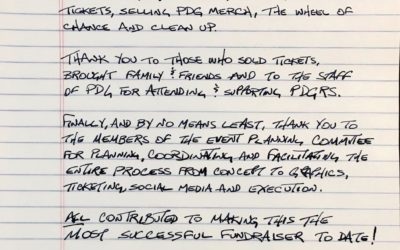 TICKETS, SELLING PDG MERCH, THE WHEEL OF
CHANCE AND CLEAN UP.
THANK YOU TO THOSE WHO SOLD TICKETS,
BROUGHT FAMILY & FRIENDS AND TO THE STAFF
OF PDG FOR ATTENDING & SUPPORTING PDGRS.
FINALLY, AND BY NO MEANS LEAST, THANK YOU TO
THE MEMBERS OF THE EVENT PLANNING COMMITTEE
FOR PLANNING, COORDINATING AND FACILITATING THE
ENTIRE PROCESS FROM CONCEPT TO GRAPHICS,
TICKETING, SOCIAL MEDIA AND EXECUTION.
ALL CONTRIBUTED TO MAKING THIS THE
MOST SUCCESSFUL FUNDRAISER TO DATE!